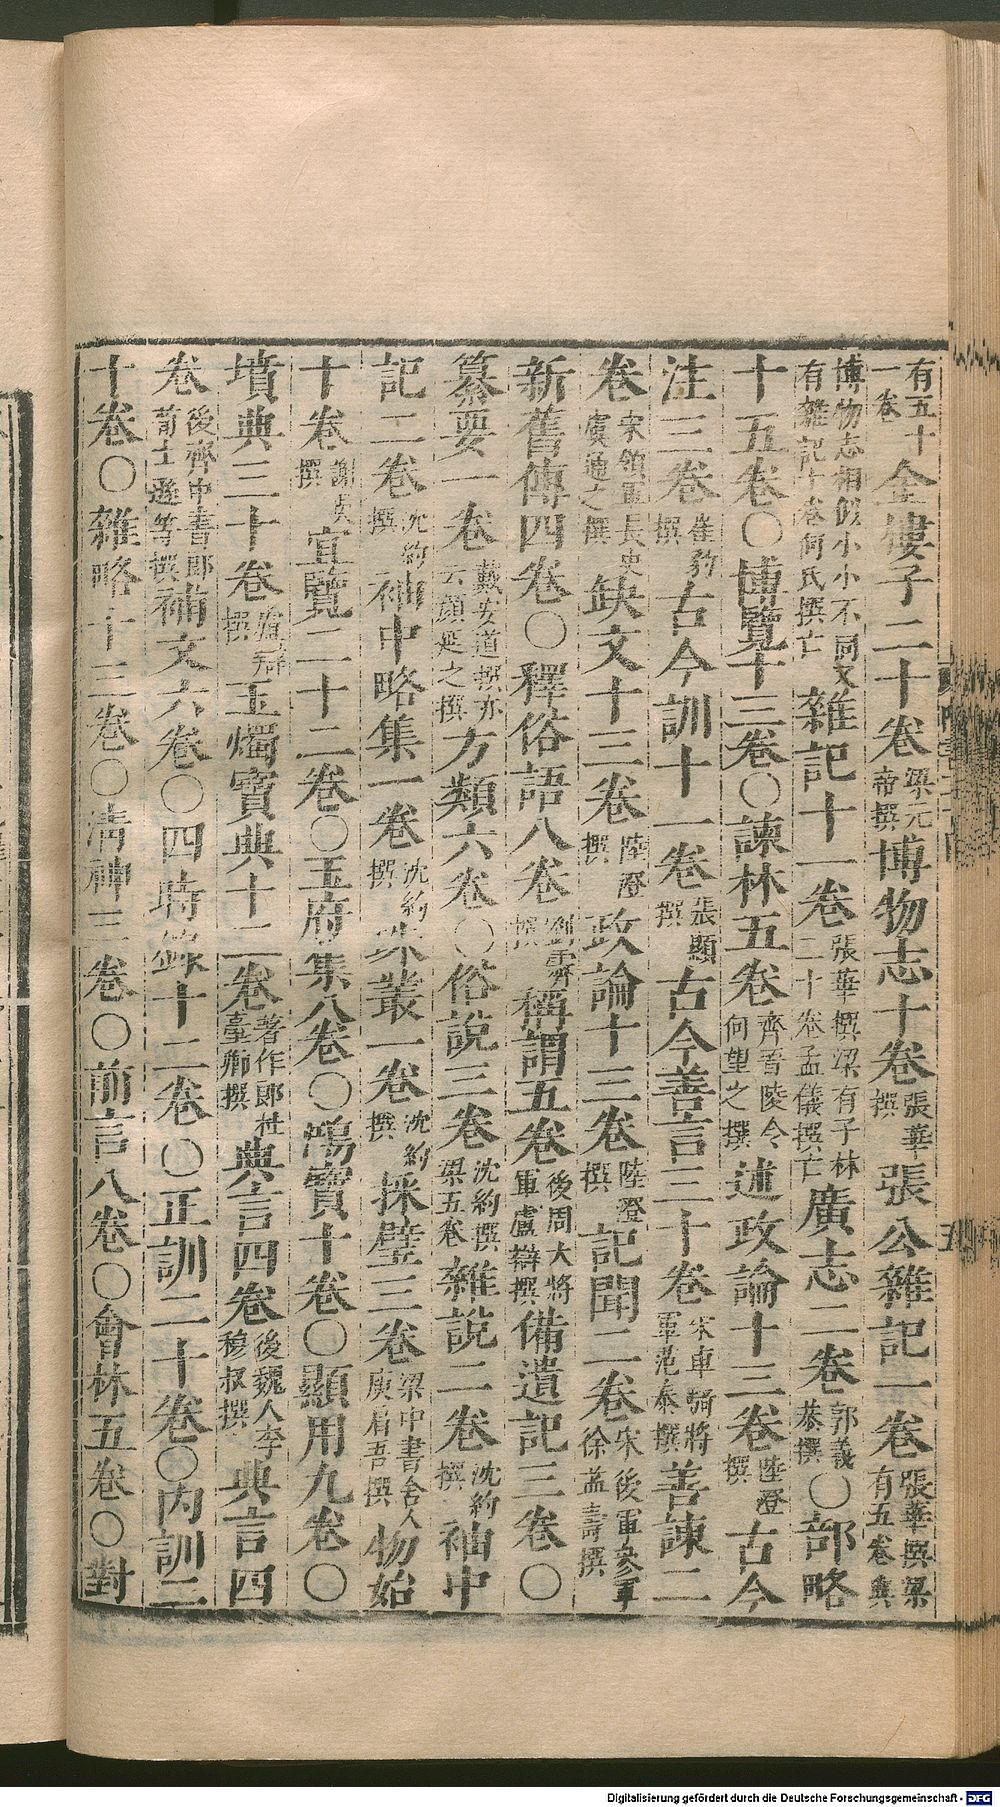 有五十一卷金樓子二十卷梁元帝撰博物志十卷張華撰張公雜記一卷張華撰梁有五卷與
博物志相似小小不同又有雜記十卷何氏撰亡雜記十一卷張華撰梁有子林二十卷孟儀撰亡廣志二卷郭義恭撰〇部略
十五卷〇博覽十三卷〇諫林五卷齊晉陵令何望之撰述政論十三卷陸澄撰古今
注三卷崔豹撰古今訓十一卷張顯撰古今善言三十卷宋車騎將軍范泰撰善諫二
卷宋領軍長史虞通之撰缺文十三卷陸澄撰政論十三卷陸澄撰記聞二卷宋後軍參軍徐益壽撰
新舊傳四卷〇釋俗語八卷劉霽撰稱謂五卷後周大將軍盧辯撰備遺記三卷〇
纂要一卷戴安道撰亦云顏延之撰方類六卷〇俗說三卷沈約撰梁五卷雜說二卷沈約撰袖中
記二卷沈約撰袖中略集一卷沈約撰珠叢一卷沈約撰採璧三卷梁中書舍人庾肩吾撰物始
十卷謝昊撰宜覽二十二卷〇玉府集八卷〇鴻寶十卷〇顯用九卷〇
墳典三十卷盧辯撰玉燭寶典十二卷著作郎杜臺卿撰典言四卷後魏人李穆叔撰典言四
卷後齊中書郎荀士遜等撰補文六卷〇四時錄十二卷〇正訓二十卷〇內訓二
十卷〇雜略十三卷〇清神三卷〇前言八卷〇會林五卷〇對
Digitalisierung gefördert durch die Deutsche Forschungsgemeinschaft - DFG